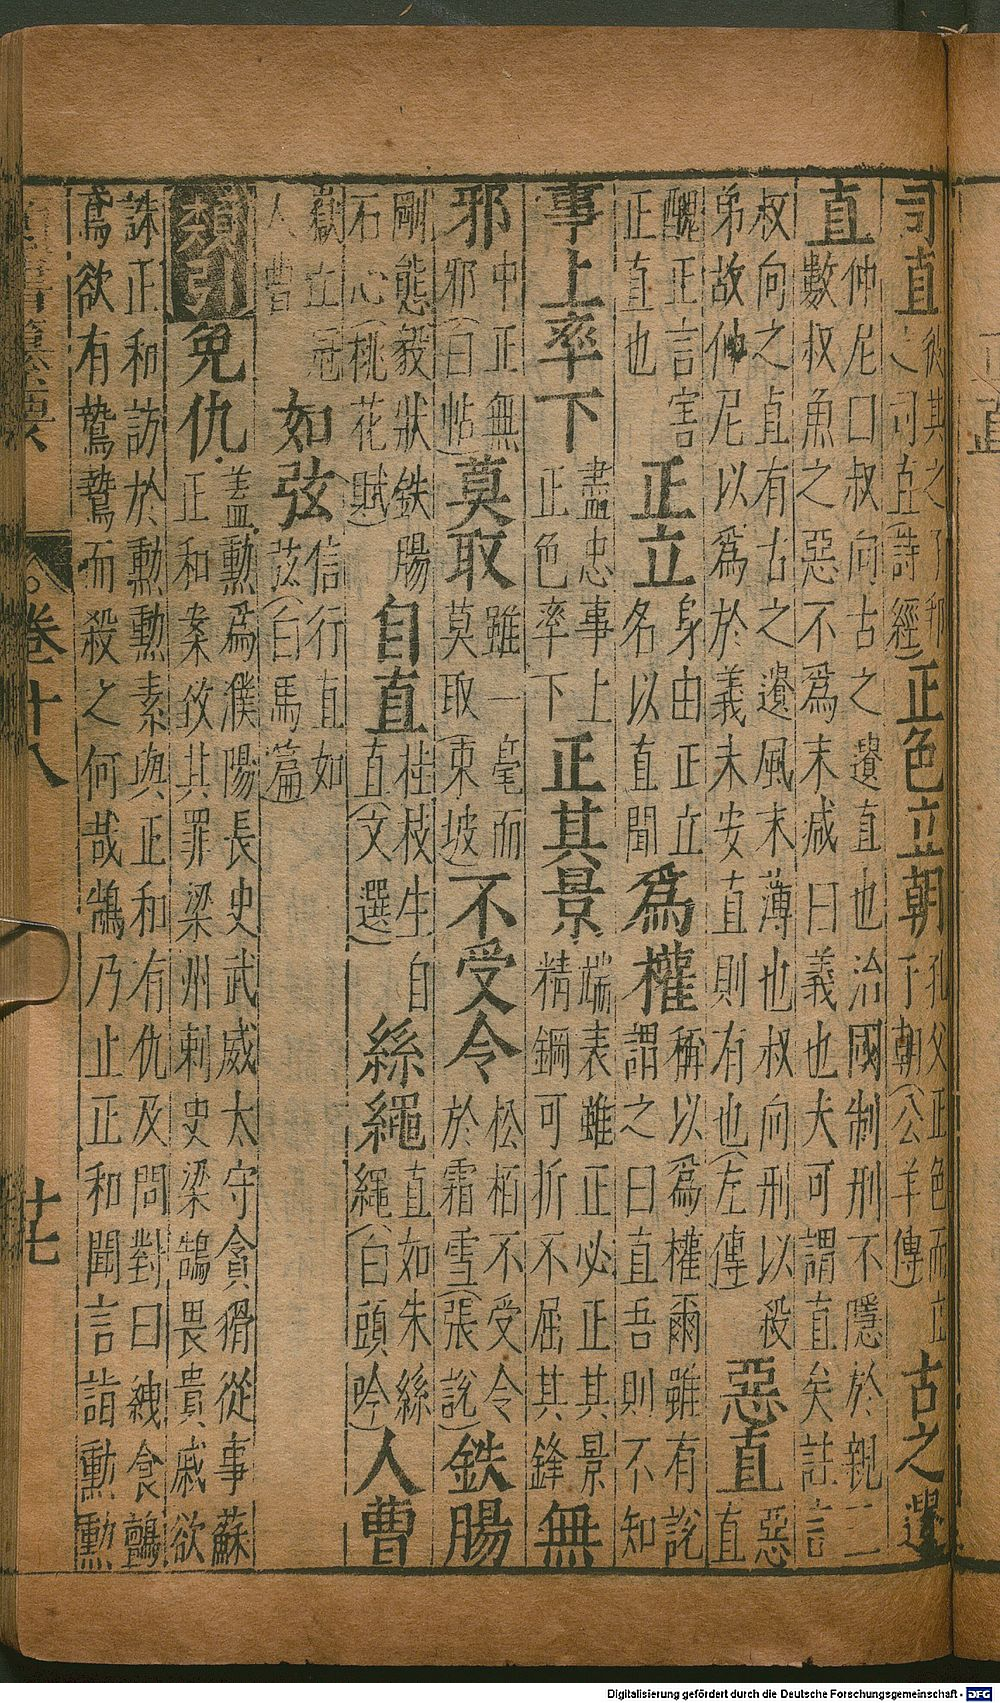 司直彼其之子邦之司直(詩經)正色立朝孔父正色而立于朝(公羊傳)古之遺
直仲尼曰叔向古之遺直也治國制刑不隱於親三數叔魚之惡不爲末减曰義也夫可謂直矣註言
叔向之直有古之遺風末薄也叔向刑以殺弟故仲尼以爲於義未安直則有也(左傳)惡直惡直
醜正言害正直也正立身由正立名以直聞爲權稱以爲權爾雖有說謂之曰直吾則不知
事上率下盡忠事上正色率下正其景端表雖正必正其景精鋼可折不屈其鋒無
邪中正無邪(白帖)莫取雖一毫而莫取(東坡)不受令松栢不受令於霜雪(張說)鉄腸
剛態毅狀鉄腸石心(桃花賦)自直桂枝生自直(文選)絲繩直如朱絲繩(白頭吟)人曹
嶽立冠人曹如弦信行直如弦(白馬篇)
類引免仇蓋勳爲濮陽長史武威太守貪猾從事蘇正和案致其罪梁州刺史梁鵠畏貴戚欲
誅正和訪於勳勳素與正和有仇及問對曰紲食鸇鳶欲有鷙鷙而殺之何哉鵠乃止正和聞言詣勳勳
卷十八
廿七
正直
Digitalisierung gefördert durch die Deutsche Forschungsgemeinschaft - DFG